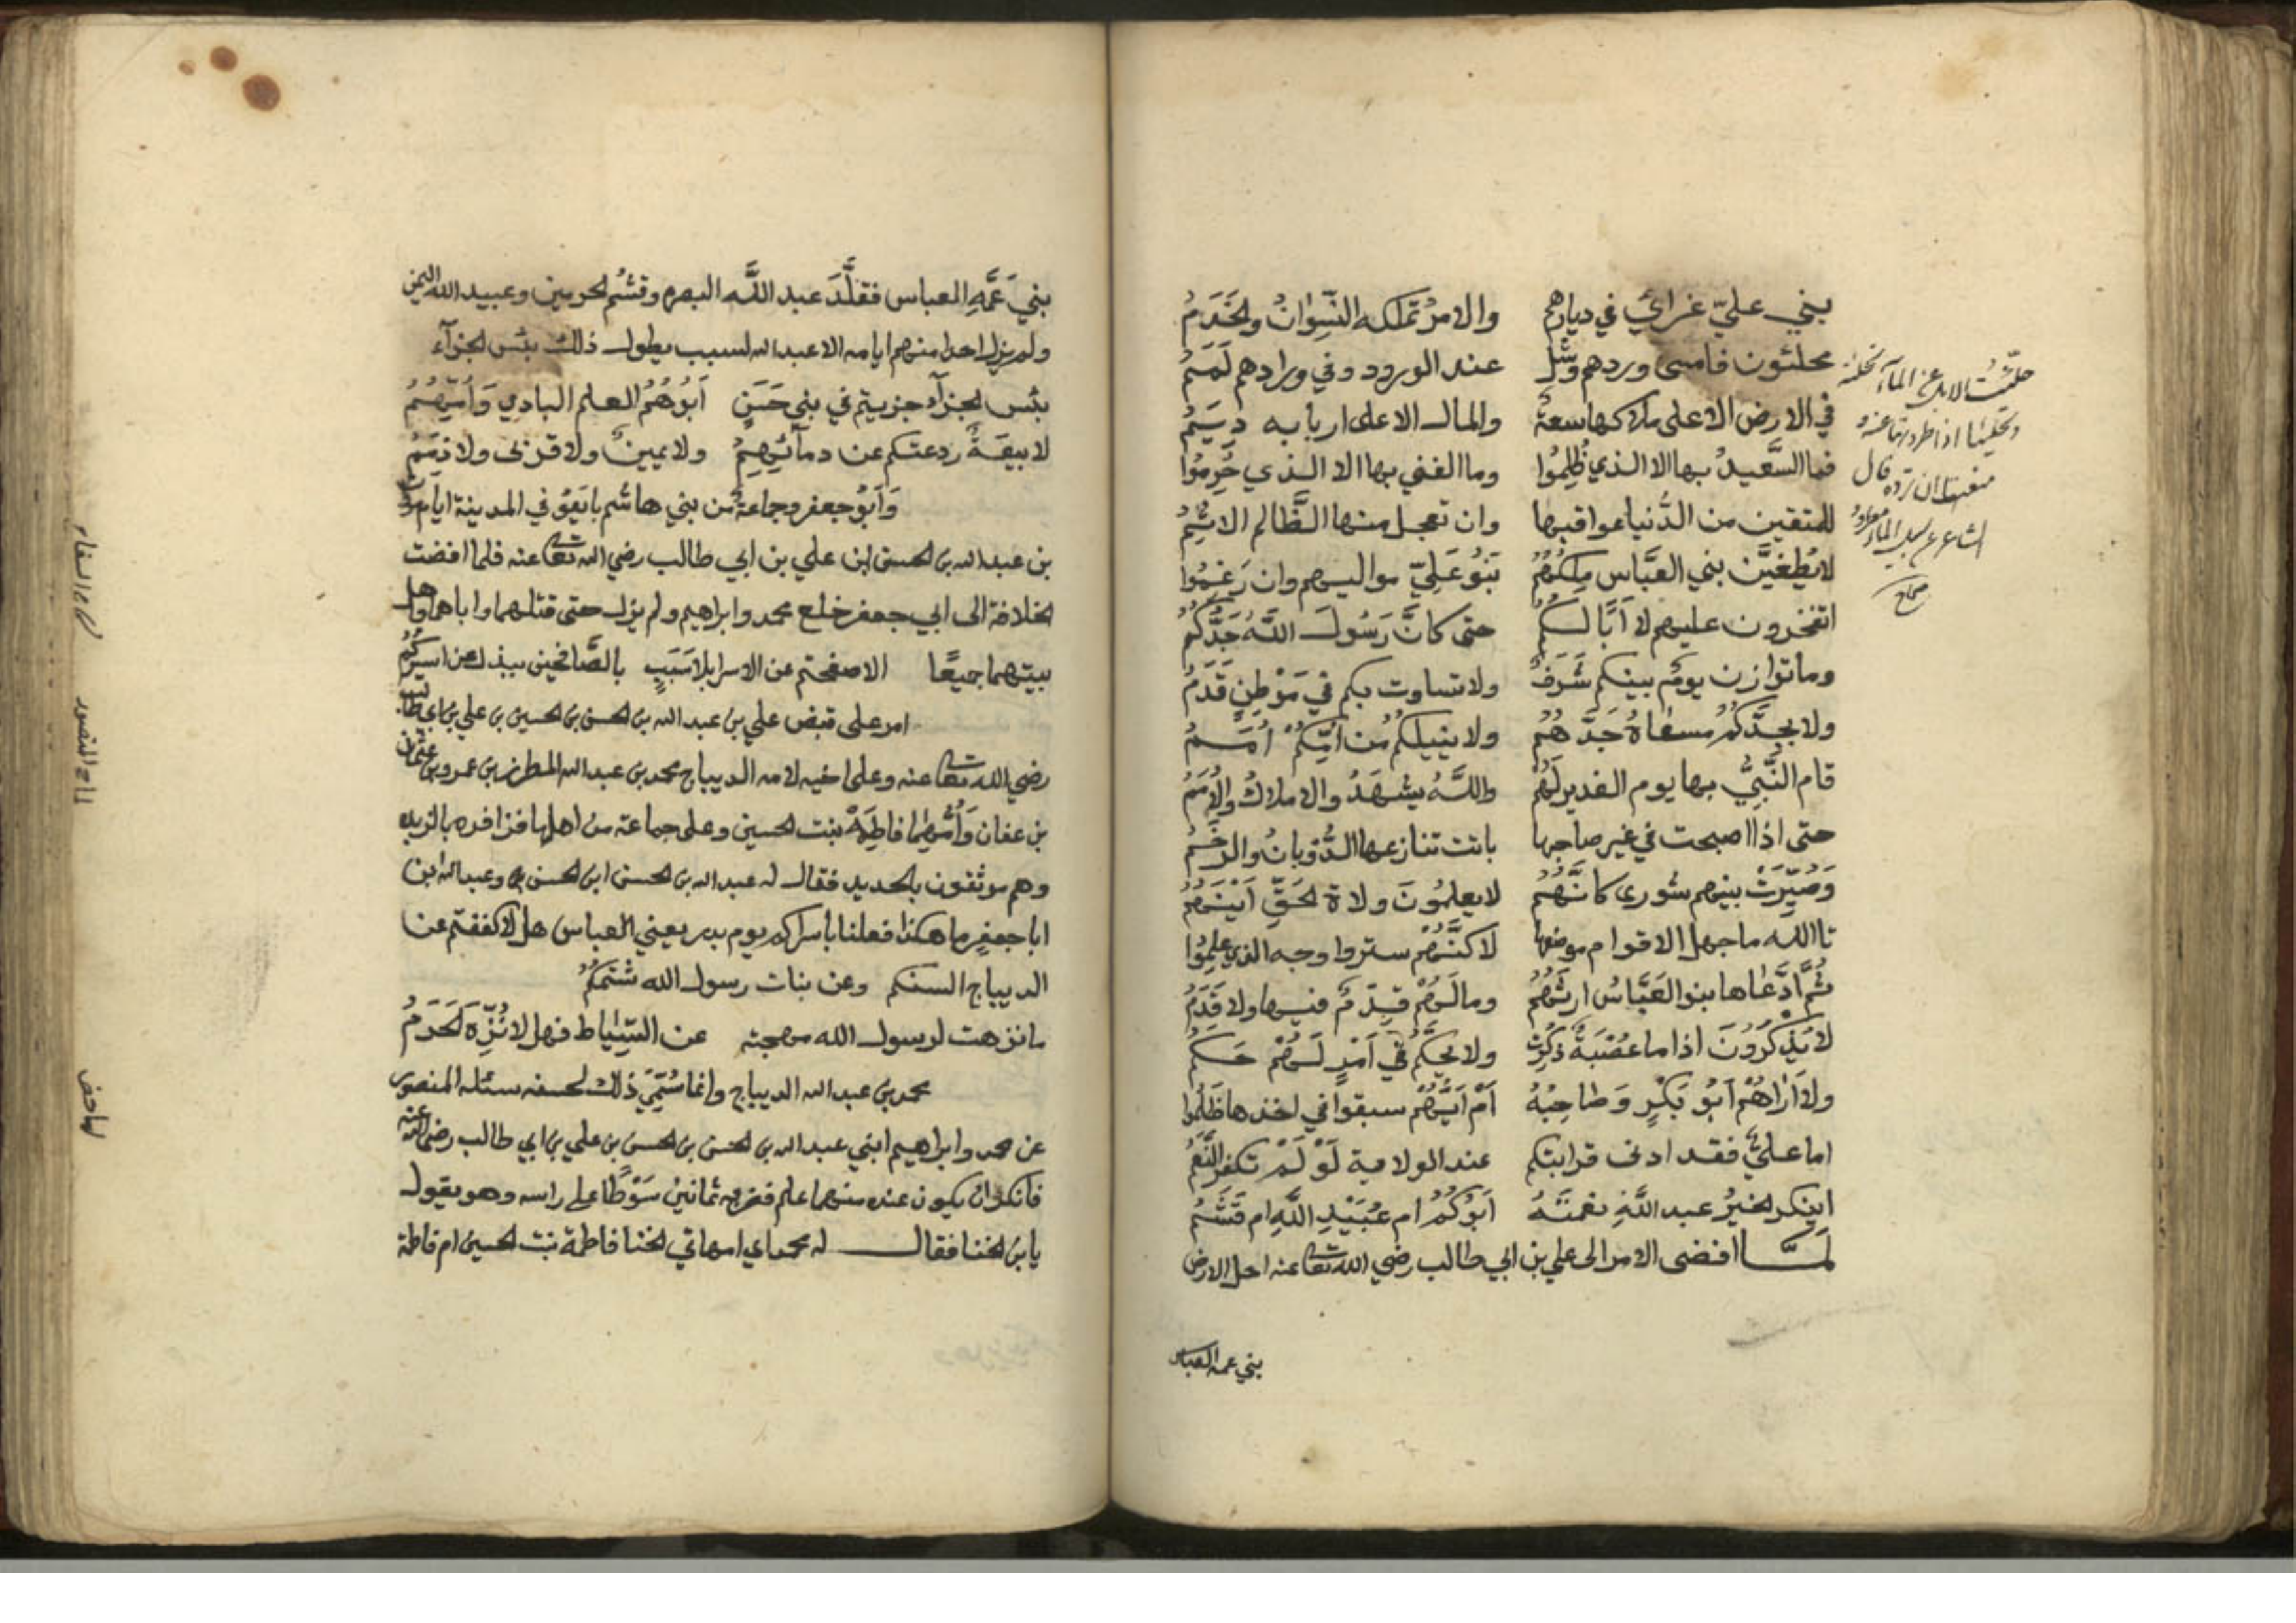 بني عليّ غرائي في ديارهم والامرُ تملكه النِّسوانُ والخَدَمُ
محلئون فامسى وردهم وشل عند الورود وفي ورادهم لَمَمُ
في الارض الا على ملاكها سعةٌ والمال الا على اربابه دِيَمُ
فما السَّعيدُ بها الا الذي ظُلِمُوا وما الغني بها الا الذي حُرِمُوا
للمتقين من الدُّنيا عواقبها وان تعجل منها الظَّالم الاثِمُ
لا يُطغِيَنَّ بني العَبَّاس مِلكُهُمُ بَنُو عَلِيّ مواليهم وان رَغِمُوا
اتفخرون عليهم لا اَبًا لَكُمُ حتى كانَّ رَسُولَ اللَّهِ جَدُّكُمُ
وما توازن يومًا بينكم شَرَفٌ ولا تساوت بكم في مَوْطِنٍ قَدَمُ
ولا بجدَّكُمُ مسعاةُ جَدَّهُمُ ولا نثيلكُمُ من اُمِّكُمْ اُمَمُ
قام النَّبِيُّ بها يوم الغدير لَهُمْ واللَّهُ يشهَدُ والاملاكُ والاُمَمُ
حتى اذا اصبحت في غير صاحبها باتت تنازعها الذُّوبانُ والرَخَمُ
وَصُيِّرَتْ بينهم شورى كانَّهُمُ لا يعلمُونَ ولاة الحَقِّ اَيْنَهُمُ
تا الله ما جهل الاقوام موضعها لاكنَّهُمْ ستروا وجه الذي علِمُوا
ثُمَّ ادَّعَاها بنو العَبَّاسُ ارثَهُمُ وما لَهُمْ قِدَمٌ فيها ولا قَدَمُ
لا يُذكَرُونَ اذا ما عُصْبَةٌ ذُكِرَت ولا يُحكَّمُ في اَمْرٍ لَهُمْ حَكَمُ
ولا رَاٰهُمْ اَبُو بَكْرٍ وَصَاحِبُهُ اَمْ اَيَّهُمْ سبقوا في اخذها ظَلَمُوا
اما عليٌّ فقد ادنى قرابتكم عند الولاية لَوْ لَمْ تكفر النِّعَمُ
اينكر الخيرُ عبد اللَّهِ نعمتَهُ اَبُوْكُمُ ام عُبَيْدِ اللَّهِ ام قُثَمُ
لَمَّا افضى الامر الى علي بن ابي طالب رضي الله تعا عنه احل الارض
بني عمه العباس
حلّئت الابل عن الماء تحلئة
وتحليئا اذا طردتها عنه و
منعتها ان ترده قال
الشاعر
صحاح
بني عَمَّهِ العباس فقلَّدَ عبد اللَّه البصره وقثمُ الحرمين وعبيد الله اليمن
ولم يزل احدا منهم ايامه الا عبد الله لسبب يطول ذلك بئس الجزآء
بئس الجزآء جزيتم في بني حَسَنٍ اَبُوْهُمُ العلم البادي وَاُمُّهُمُ
لا بيعَةٌ ردعتكم عن دمآئِهِمُ ولا يمينٌ ولا قربى ولا ذِمَمُ
وَاَبُو جعفر وجماعةٌ من بني هاشم بايَعُوْ في المدينة ايام
بن عبد الله بن الحسن بن علي بن ابي طالب رضي الله تعا عنه فلما افضت
الخلافة الى ابي جعفر خلع محمد وابراهيم ولم يزل حتى قتلهما واباهما واهل
بيتهما جميعًا الا صفحتم عن الاسرا بلا سَبَبٍ بالصَّافحين ببذل عن اسيركُمُ
امر على قبض علي بن عبد الله بن الحسن بن الحسين بن علي بن ابي طالب
رضي الله تعا عنه وعلى اخيه لامه الديباج محمد بن عبد الله المطرز بن عمرو بن عثمان
بن عفان وَاُمُّهُمَا فاطِمَهْ بنت الحسين وعلى جماعة من اهلها فزافره بالزبله
وهم موثقون بالحديد فقال له عبد الله بن الحسن ابن الحسن وعبد الله ابن
ابا جعفرٍ ما هكذا فعلنا باسراكم يوم بدر يعني العباس هل لا كففتم عن
الديباج السنكم وعن بنات رسول الله شتمكُمُ
ما نزهت لرسول الله مهجته عن السِّيَاط فهل لا نُزِّهَ الحَرَمُ
محمد بن عبد الله الديباج وانما سُمِّيَ ذلك لحسنه سئله المنصور
عن محمد وابراهيم ابني عبد الله بن الحسن بن الحسن بن علي بن ابي طالب رضي الله عنه
فانكر ان يكون عنده منهما علم فضربه ثمانين سَوْطًا على راسه وهو يقول
يا بن الخنا فقال له محمد اي امهاتي الخنا فاطمة بنت الحسين ام فاطمة